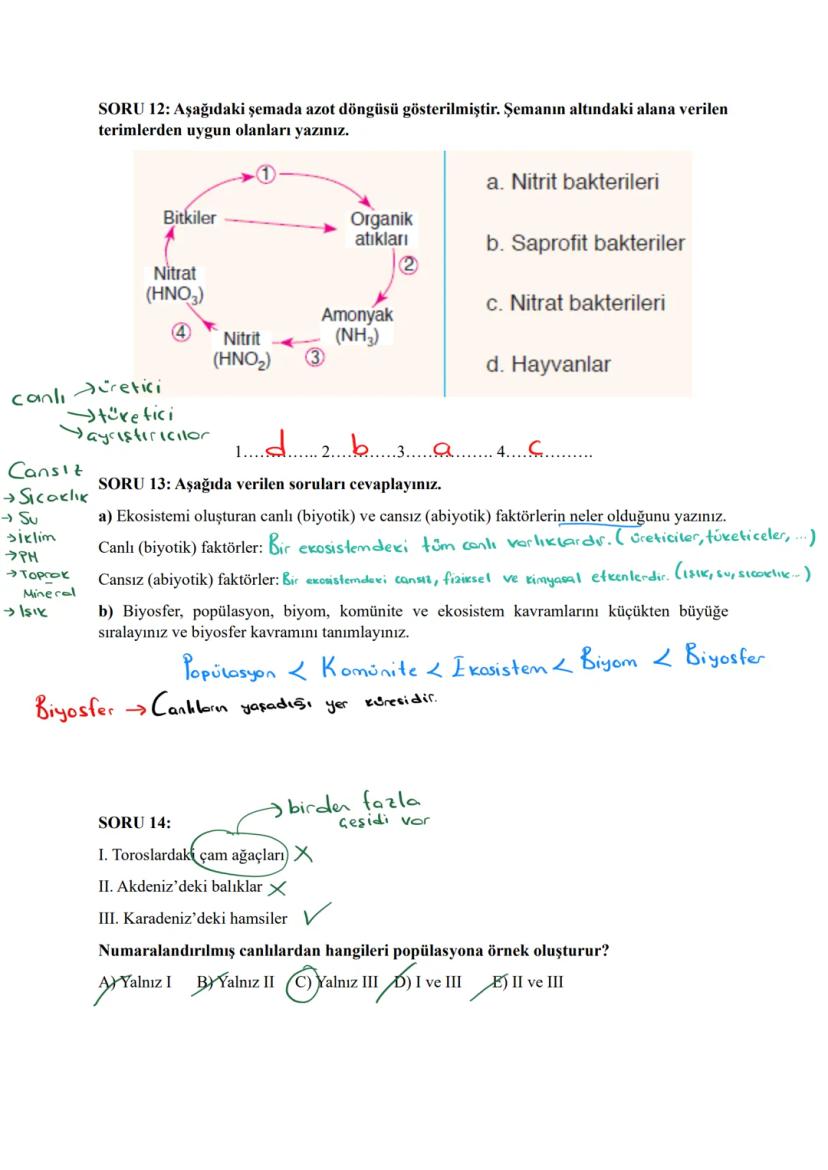 SORU 12: Aşağıdaki şemada azot döngüsü gösterilmiştir. Şemanın altındaki alana verilen
terimlerden uygun olanları yazınız.
1
Bitkiler
Organik
atıkları
2
Nitrat
(HNO3)
Amonyak
(NH3)
4
Nitrit
(HNO2)
3
a. Nitrit bakterileri
b. Saprofit bakteriler
c. Nitrat bakterileri
d. Hayvanlar
canlı →üretici
→tüketici
→ayrıştırıcılar
1....d...... 2....b......3.....a....... 4....c..........
Cansız
→ Sıcaklık
→ Su
→ iklim
→ PH
→ Toprak
Mineral
→ Işık
SORU 13: Aşağıda verilen soruları cevaplayınız.
a) Ekosistemi oluşturan canlı (biyotik) ve cansız (abiyotik) faktörlerin neler olduğunu yazınız.
Canlı (biyotik) faktörler: Bir ekosistemdeki tüm canlı varlıklardır. ( üreticiler, tüketiceler, ...)
Cansız (abiyotik) faktörler: Bir ekosistemdeki cansız, fiziksel ve kimyasal etkenlerdir. (ışık, su, sıcaklık...)
b) Biyosfer, popülasyon, biyom, komünite ve ekosistem kavramlarını küçükten büyüğe
sıralayınız ve biyosfer kavramını tanımlayınız.
Popülasyon < Komünite < Ekosistem < Biyom < Biyosfer
Biyosfer → Canlıların yaşadığı yer küresidir.
→ birden fazla
çeşidi var
SORU 14:
I. Toroslardaki çam ağaçları X
II. Akdeniz’deki balıklar X
III. Karadeniz’deki hamsiler ✓
Numaralandırılmış canlılardan hangileri popülasyona örnek oluşturur?
A) Yalnız I B) Yalnız II C) Yalnız III D) I ve III E) II ve III